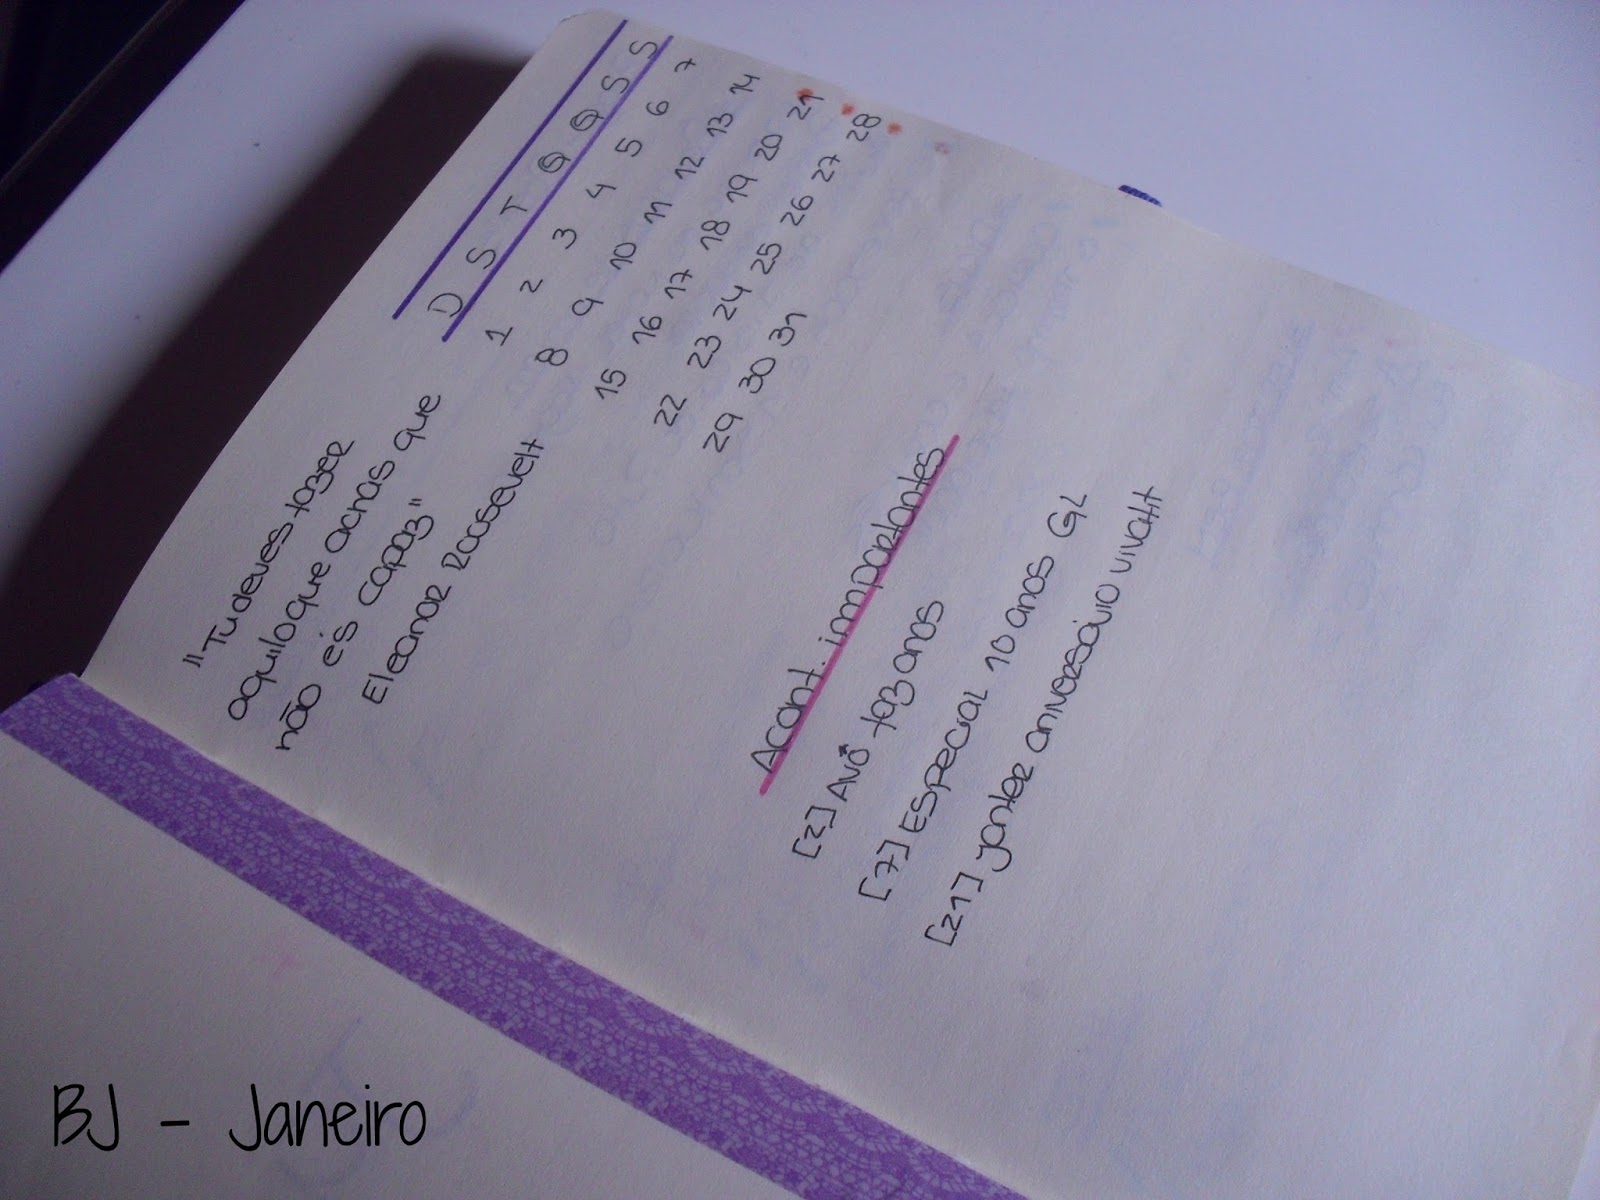 "Tu deves fazer
aquilo que achas que
não és capaz"
Eleanor Roosevelt
D S T Q Q S S
1 2 3 4 5 6 7
8 9 10 11 12 13 14
15 16 17 18 19 20 21
22 23 24 25 26 27 28
29 30 31
Acont. importantes
[2] Avô faz anos
[7] Especial 10 anos GL
[21] Jantar aniversário vivatt
BJ - Janeiro